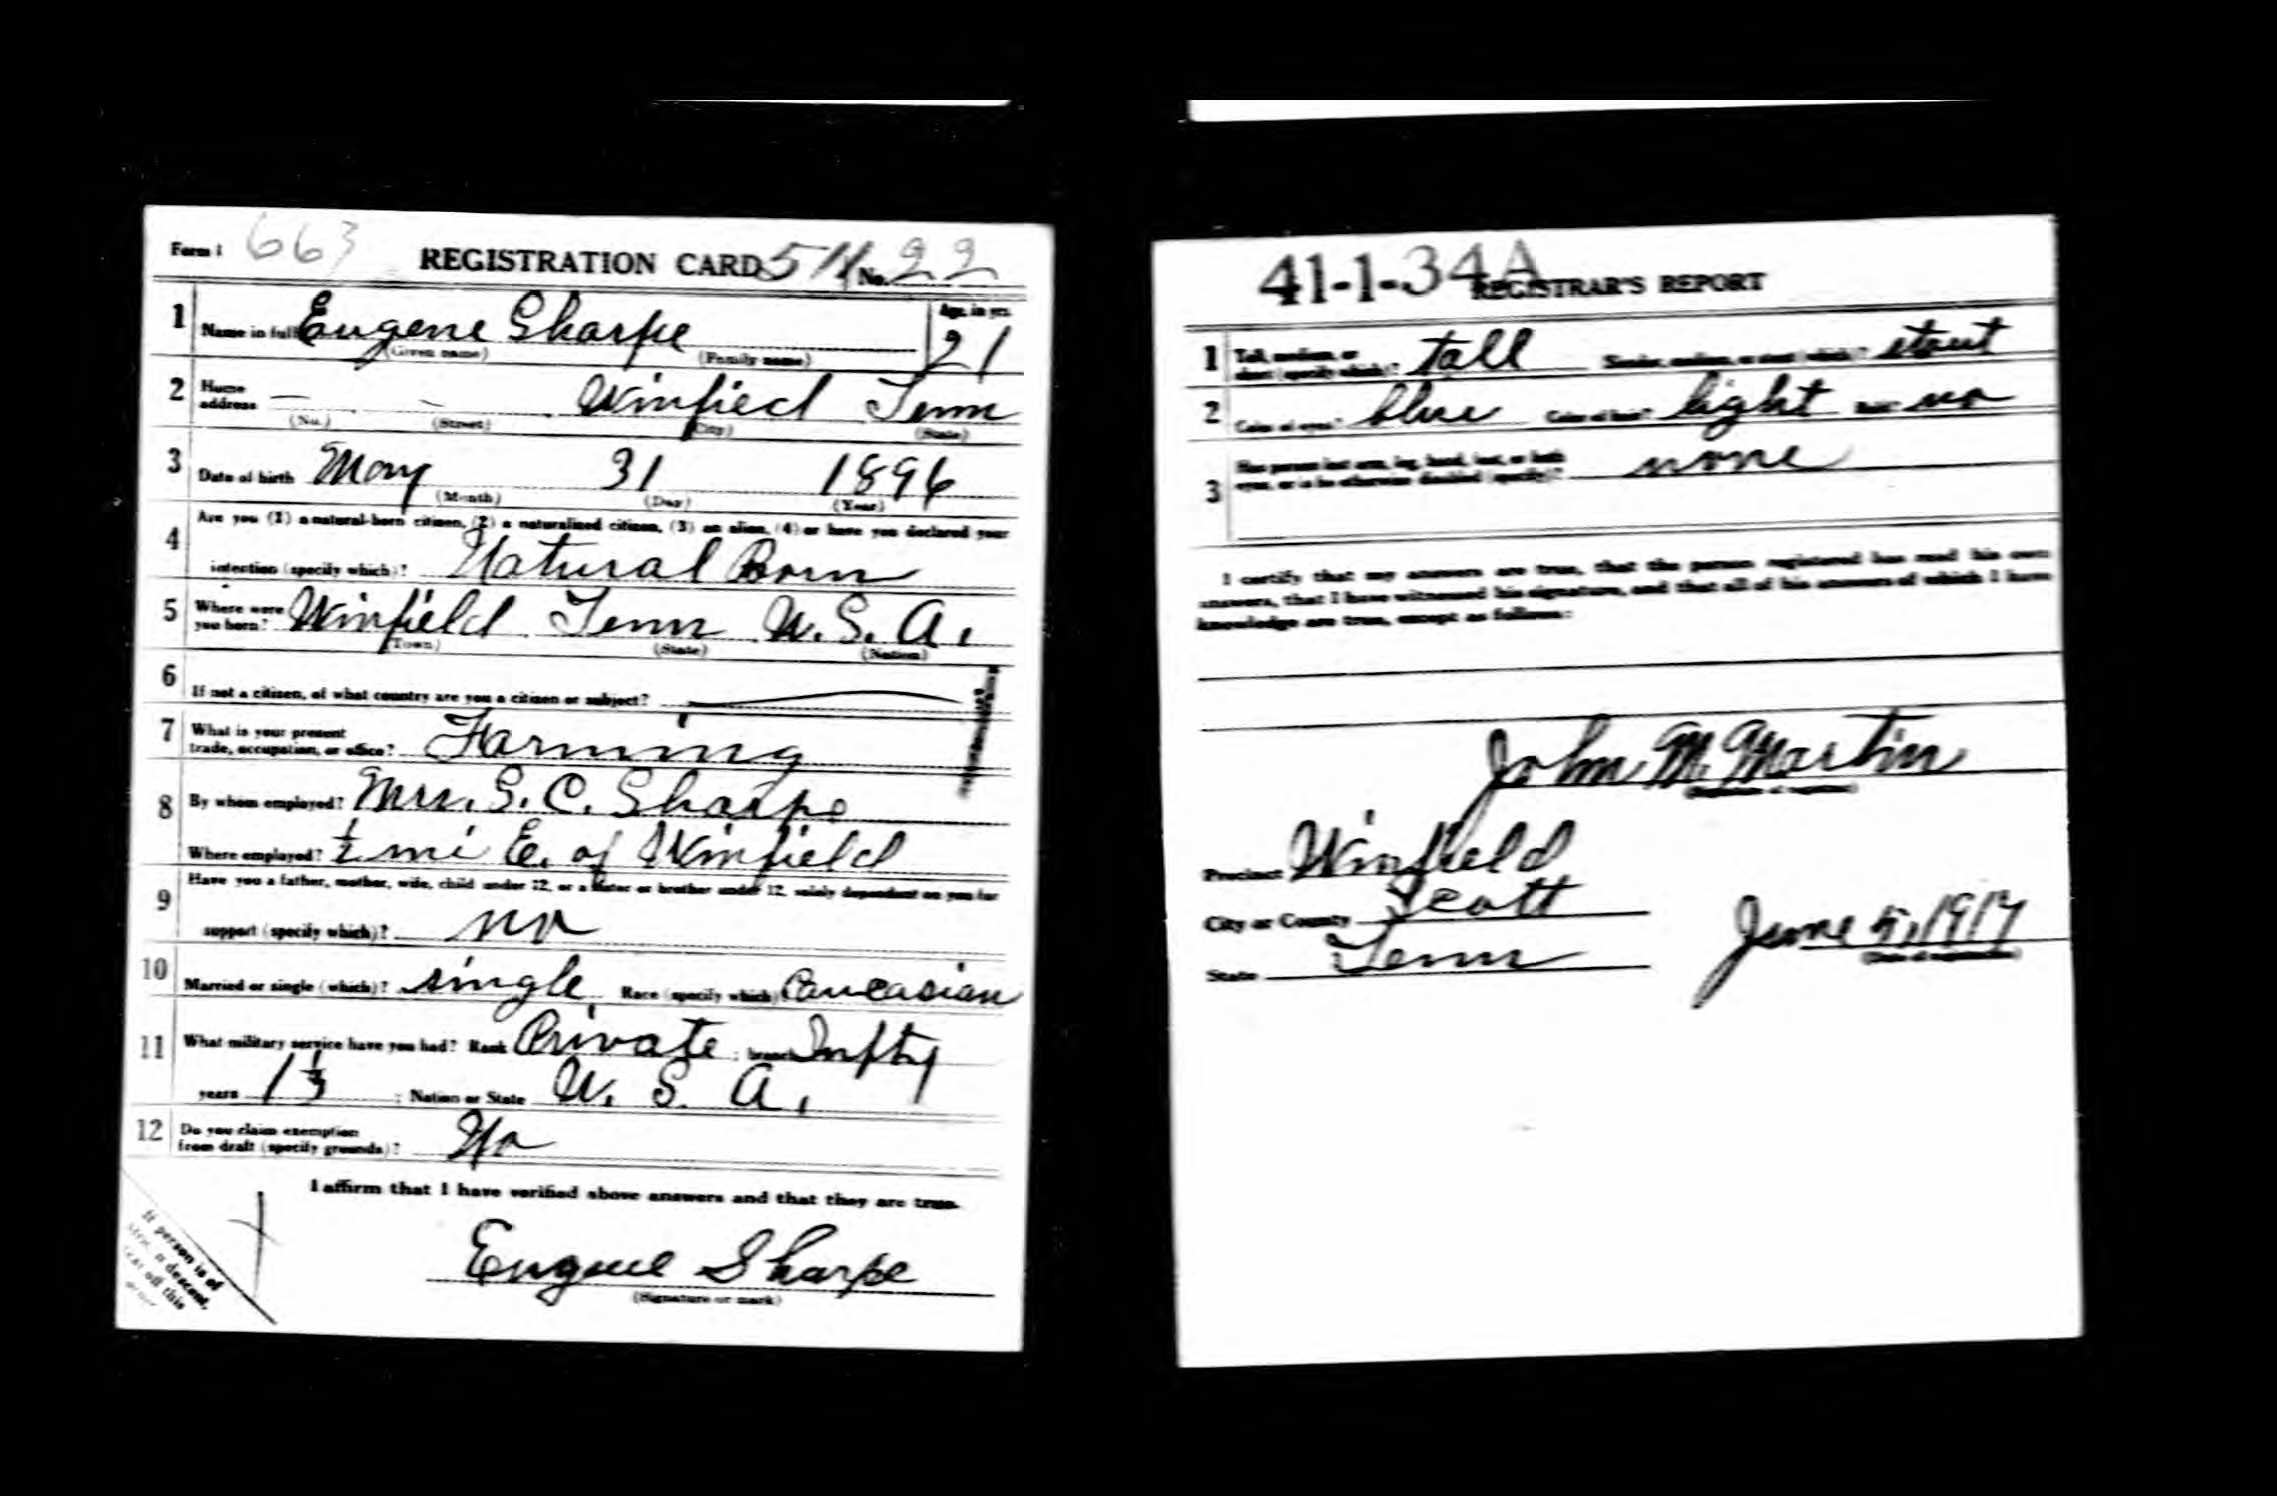 Form 1 663 REGISTRATION CARD No. 22
1 Name in full Eugene Sharpe Age, in yrs. 21
(Given name) (Family name)
2 Home address — - Winfield Tenn
(No.) (Street) (City) (State)
3 Date of birth May 31 1896
(Month) (Day) (Year)
4 Are you (1) a natural-born citizen, (2) a naturalized citizen, (3) an alien, (4) or have you declared your
intention (specify which)? Natural Born
5 Where were you born? Winfield Tenn U.S.A.
(Town) (State) (Nation)
6 If not a citizen, of what country are you a citizen or subject?
7 What is your present trade, occupation, or office? Farming
8 By whom employed? Mrs. S. C. Sharpe
Where employed? ½ mi E. of Winfield
9 Have you a father, mother, wife, child under 12, or a sister or brother under 12, solely dependent on you for
support (specify which)? no
10 Married or single (which)? single Race (specify which)? Caucasian
11 What military service have you had? Rank Private ; branch Infty
years 1⅓ ; Nation or State U. S. A.
12 Do you claim exemption from draft (specify grounds)? No
I affirm that I have verified above answers and that they are true.
Eugene Sharpe
(Signature or mark)
If person is of
descent,
off this
41-1-34A
REGISTRAR'S REPORT
1 Tall, medium, or short (specify which)? tall Slender, medium, or stout (which)? stout
2 Color of eyes? blue Color of hair? light Bald? no
3 Has person lost arm, leg, hand, foot, or both eyes, or is he otherwise disabled (specify)? none
I certify that my answers are true, that the person registered has read his own
answers, that I have witnessed his signature, and that all of his answers of which I have
knowledge are true, except as follows:
John M. Martin
(Signature of registrar)
Precinct Winfield
City or County Scott
State Tenn
June 5, 1917
(Date of registration)